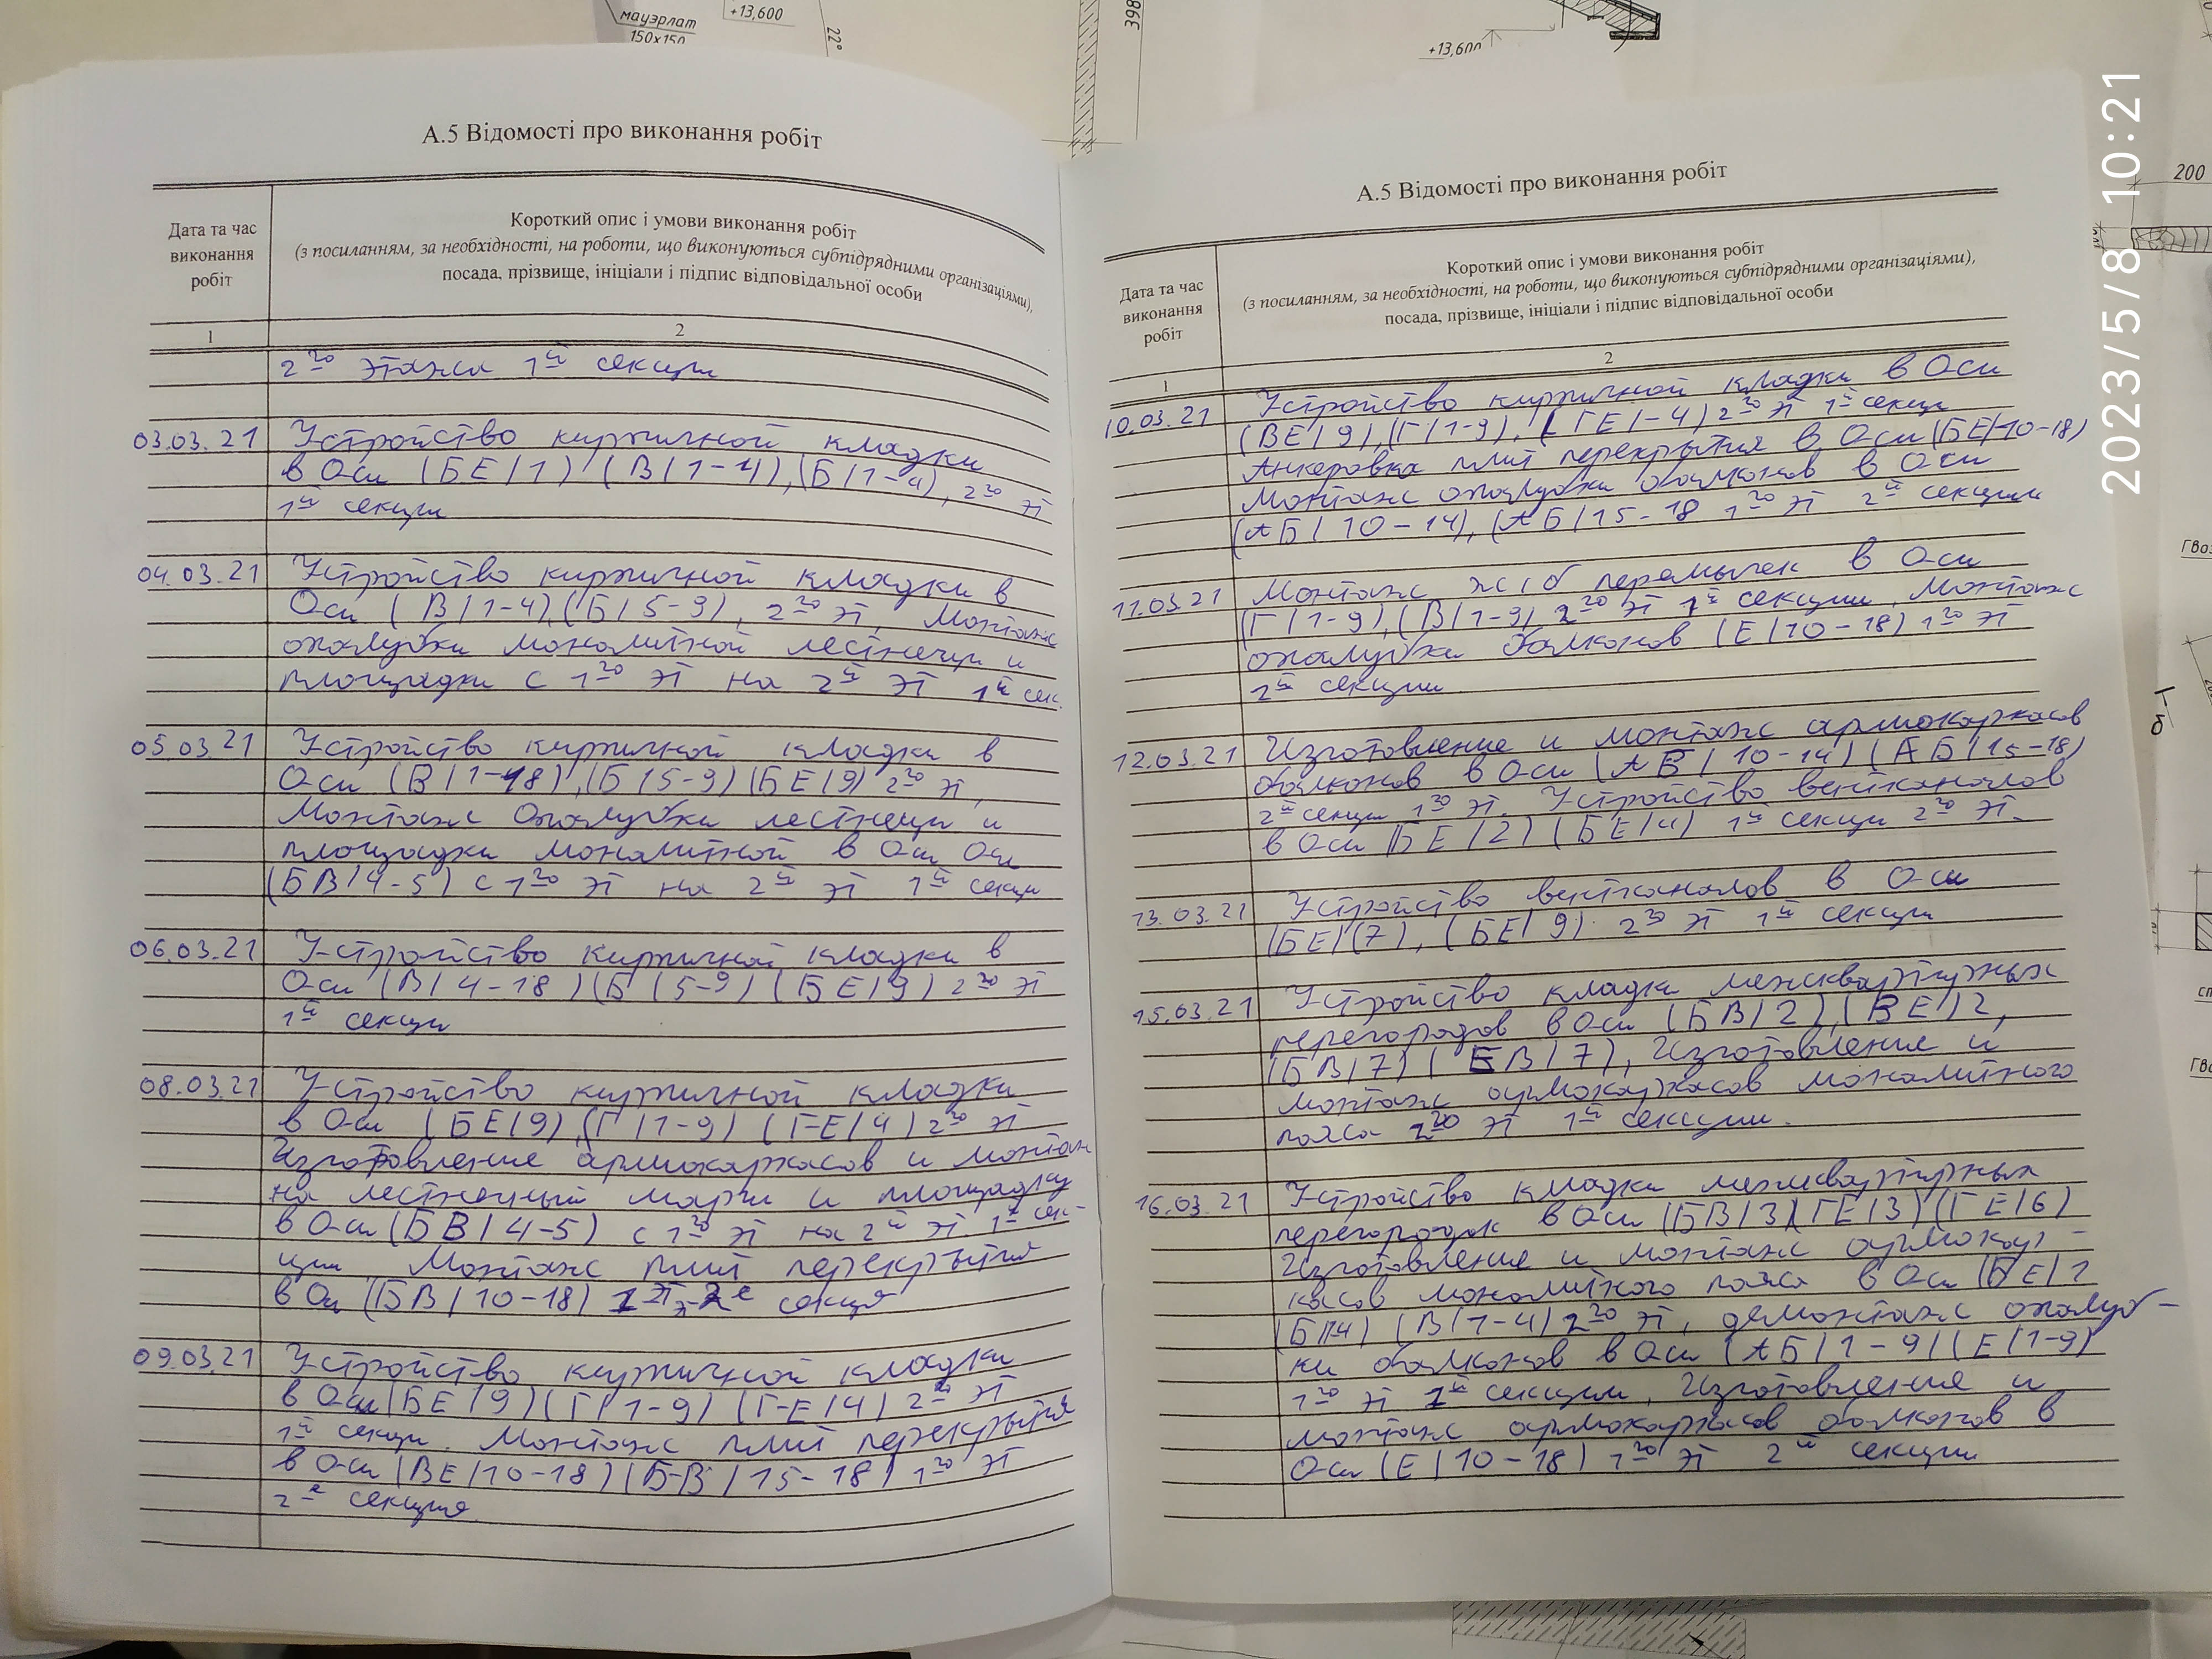 мауэрлат
150х150
+13,600
22°
398
+13,600
200
2023/5/8 10:21
А.5 Відомості про виконання робіт
Дата та час
виконання
робіт
Короткий опис і умови виконання робіт
(з посиланням, за необхідності, на роботи, що виконуються субпідрядними організаціями),
посада, прізвище, ініціали і підпис відповідальної особи
1
2
2го этажа 1й секции
03.03.21 Устройство кирпичной кладки
в Оси (БЕ/1) (В/1-4), (Б/1-4), 2го эт
1й секции
04.03.21 Устройство кирпичной кладки в
Оси (В/1-4), (Б/5-9), 2го эт, Монтаж
опалубки монолитной лестнецы и
площадки с 1го эт на 2й эт 1й сек.
05.03.21 Устройство кирпичной кладки в
Оси (В/1-18), (Б/5-9) (БЕ/9) 2го эт,
Монтаж Опалубки лестнецы и
площадки монолитной в Оси Оси
(БВ/4-5) с 1го эт на 2й эт 1й секци
06.03.21 Устройство кирпичной кладки в
Оси (В/4-18) (Б/5-9) (БЕ/9) 2го эт
1й секци
08.03.21 Устройство кирпичной кладки
в Оси (БЕ/9), (Г/1-9) (ГЕ/4) 2го эт
Изготовление армокаркасов и монтаж
на лестнечный марш и площадку
в Оси (БВ/4-5) с 1го эт на 2й эт 1й сек-
ции. Монтаж плит перекрытия
в Оси (БВ/10-18) секция
09.03.21 Устройство кирпичной кладки
в Оси (БЕ/9) (Г/1-9) (Г-Е/4) 2й эт
1й секци. Монтаж плит перекрытия
в Оси (ВЕ/10-18) (Б-В/15-18) 1го эт
2е секция
А.5 Відомості про виконання робіт
Дата та час
виконання
робіт
Короткий опис і умови виконання робіт
(з посиланням, за необхідності, на роботи, що виконуються субпідрядними організаціями),
посада, прізвище, ініціали і підпис відповідальної особи
1
2
10.03.21 Устройство кирпичной кладки в Оси
(ВЕ/9), (Г/1-9), (ГЕ/-4) 2го эт 1й секци
Анкеровка плит перекрытия в Оси (БЕ/10-18)
Монтаж опалубки балконов в Оси
(АБ/10-14), (АБ/15-18 1го эт 2й секции
11.03.21 Монтаж ж/б перемычек в Оси
(Г/1-9), (В/1-9) 2го эт 1й секции, Монтаж
опалубки балконов (Е/10-18) 1го эт
2й секции
12.03.21 Изготовление и монтаж армокаркасов
балконов в Оси (АБ/10-14) (АБ/15-18)
2й секци 1го эт. Устройство вентканалов
в Оси (БЕ/2) (БЕ/4) 1й секци 2го эт.
13.03.21 Устройство вентканалов в Оси
(БЕ/(7), (БЕ/9) 2го эт 1й секции
15.03.21 Устройство кладки межквартирных
перегородов в Оси (БВ/2), (ВЕ/)2,
(БВ/7) (ЕВ/7), Изготовление и
монтаж армокаркасов монолитного
пояса 2го эт 1й секции.
16.03.21 Устройство кладки межквартирных
перегородок в Оси (БВ/3)(ГЕ/3) (ГЕ/6)
Изготовление и монтаж армокар-
касов монолитного пояса в Оси (БЕ/1
(Б/14) (В/1-4) 2го эт, демонтаж опалуб-
ки балконов в Оси (АБ/1-9) (Е/1-9)
1го эт 1й секции, Изготовление и
монтаж армокаркасов балконов в
Оси (Е/10-18) 1го эт 2й секции